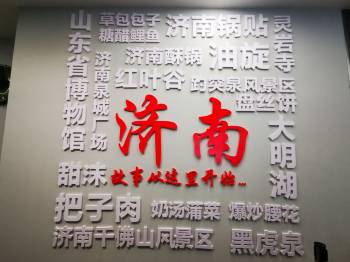 山东省博物馆
草包包子
糖醋鲤鱼
济南锅贴
灵岩寺
济南泉城广场
济南酥锅
油旋
红叶谷
趵突泉风景区
盘丝饼
济南
故事从这里开始...
大明湖
甜沫
把子肉
奶汤蒲菜
爆炒腰花
济南千佛山风景区
黑虎泉